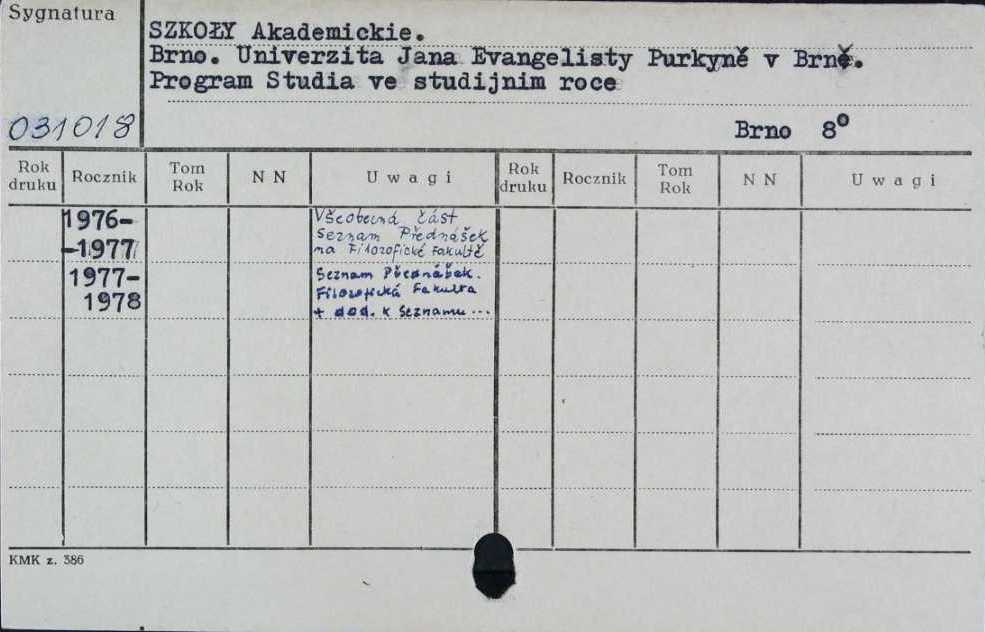 Sygnatura
SZKOŁY Akademickie.
Brno. Univerzita Jana Evangelisty Purkyně v Brně.
Program Studia ve studijnim roce
031018
Brno 8°
Rok druku Rocznik Tom Rok N N Uwagi Rok druku Rocznik Tom Rok N N Uwagi
1976- Všeobecná část
-1977 Seznam Přednášek
na Filozofické Fakultě
1977- Seznam Přednášek.
1978 Filozofická Fakulta
+ dod. k Seznamu ...
KMK z. 386